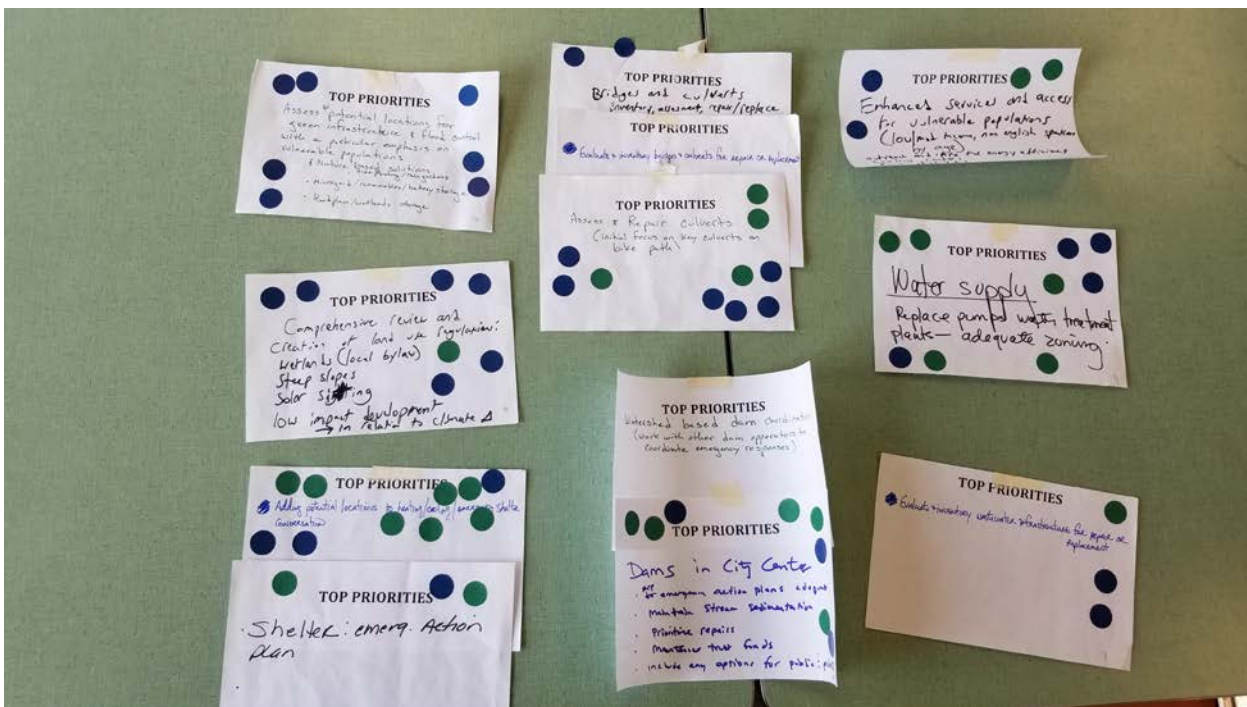 TOP PRIORITIES
Assess potential locations for
green infrastructure & flood control
with a particular emphasis on
vulnerable populations
Nature based solutions
- Microgrid/renewables/battery storage
wetlands storage
TOP PRIORITIES
Comprehensive review and
creation of land use regulation:
wetlands (local bylaw)
Steep slopes
Solar
low impact development
→ in relation to climate Δ
TOP PRIORITIES
Adding potential locations to heating/cooling/emergency shelter
conversation
TOP PRIORITIES
. Shelter: emerg. Action
plan
TOP PRIORITIES
Bridges and culverts
inventory, assessment, repair/replace
TOP PRIORITIES
Evaluate + inventory bridges + culverts for repair or replacement
TOP PRIORITIES
Assess & Repair culverts
(initial focus on key culverts on
bike path)
TOP PRIORITIES
Watershed based dam coordination
(work with other dam to
coordinate emergency responses)
TOP PRIORITIES
Dams in City Center
are emergency action plans
. maintain stream sedimentation
. Prioritize repairs
. trust funds
. include any options for public:
TOP PRIORITIES
Enhanced services and access
for vulnerable populations
(low/mod income, non english speaking
by age)
energy efficiency
TOP PRIORITIES
Water supply
Replace pumps water treatment
plants — adequate zoning.
TOP PRIORITIES
Evaluate + inventory wastewater infrastructure for repair or
replacement